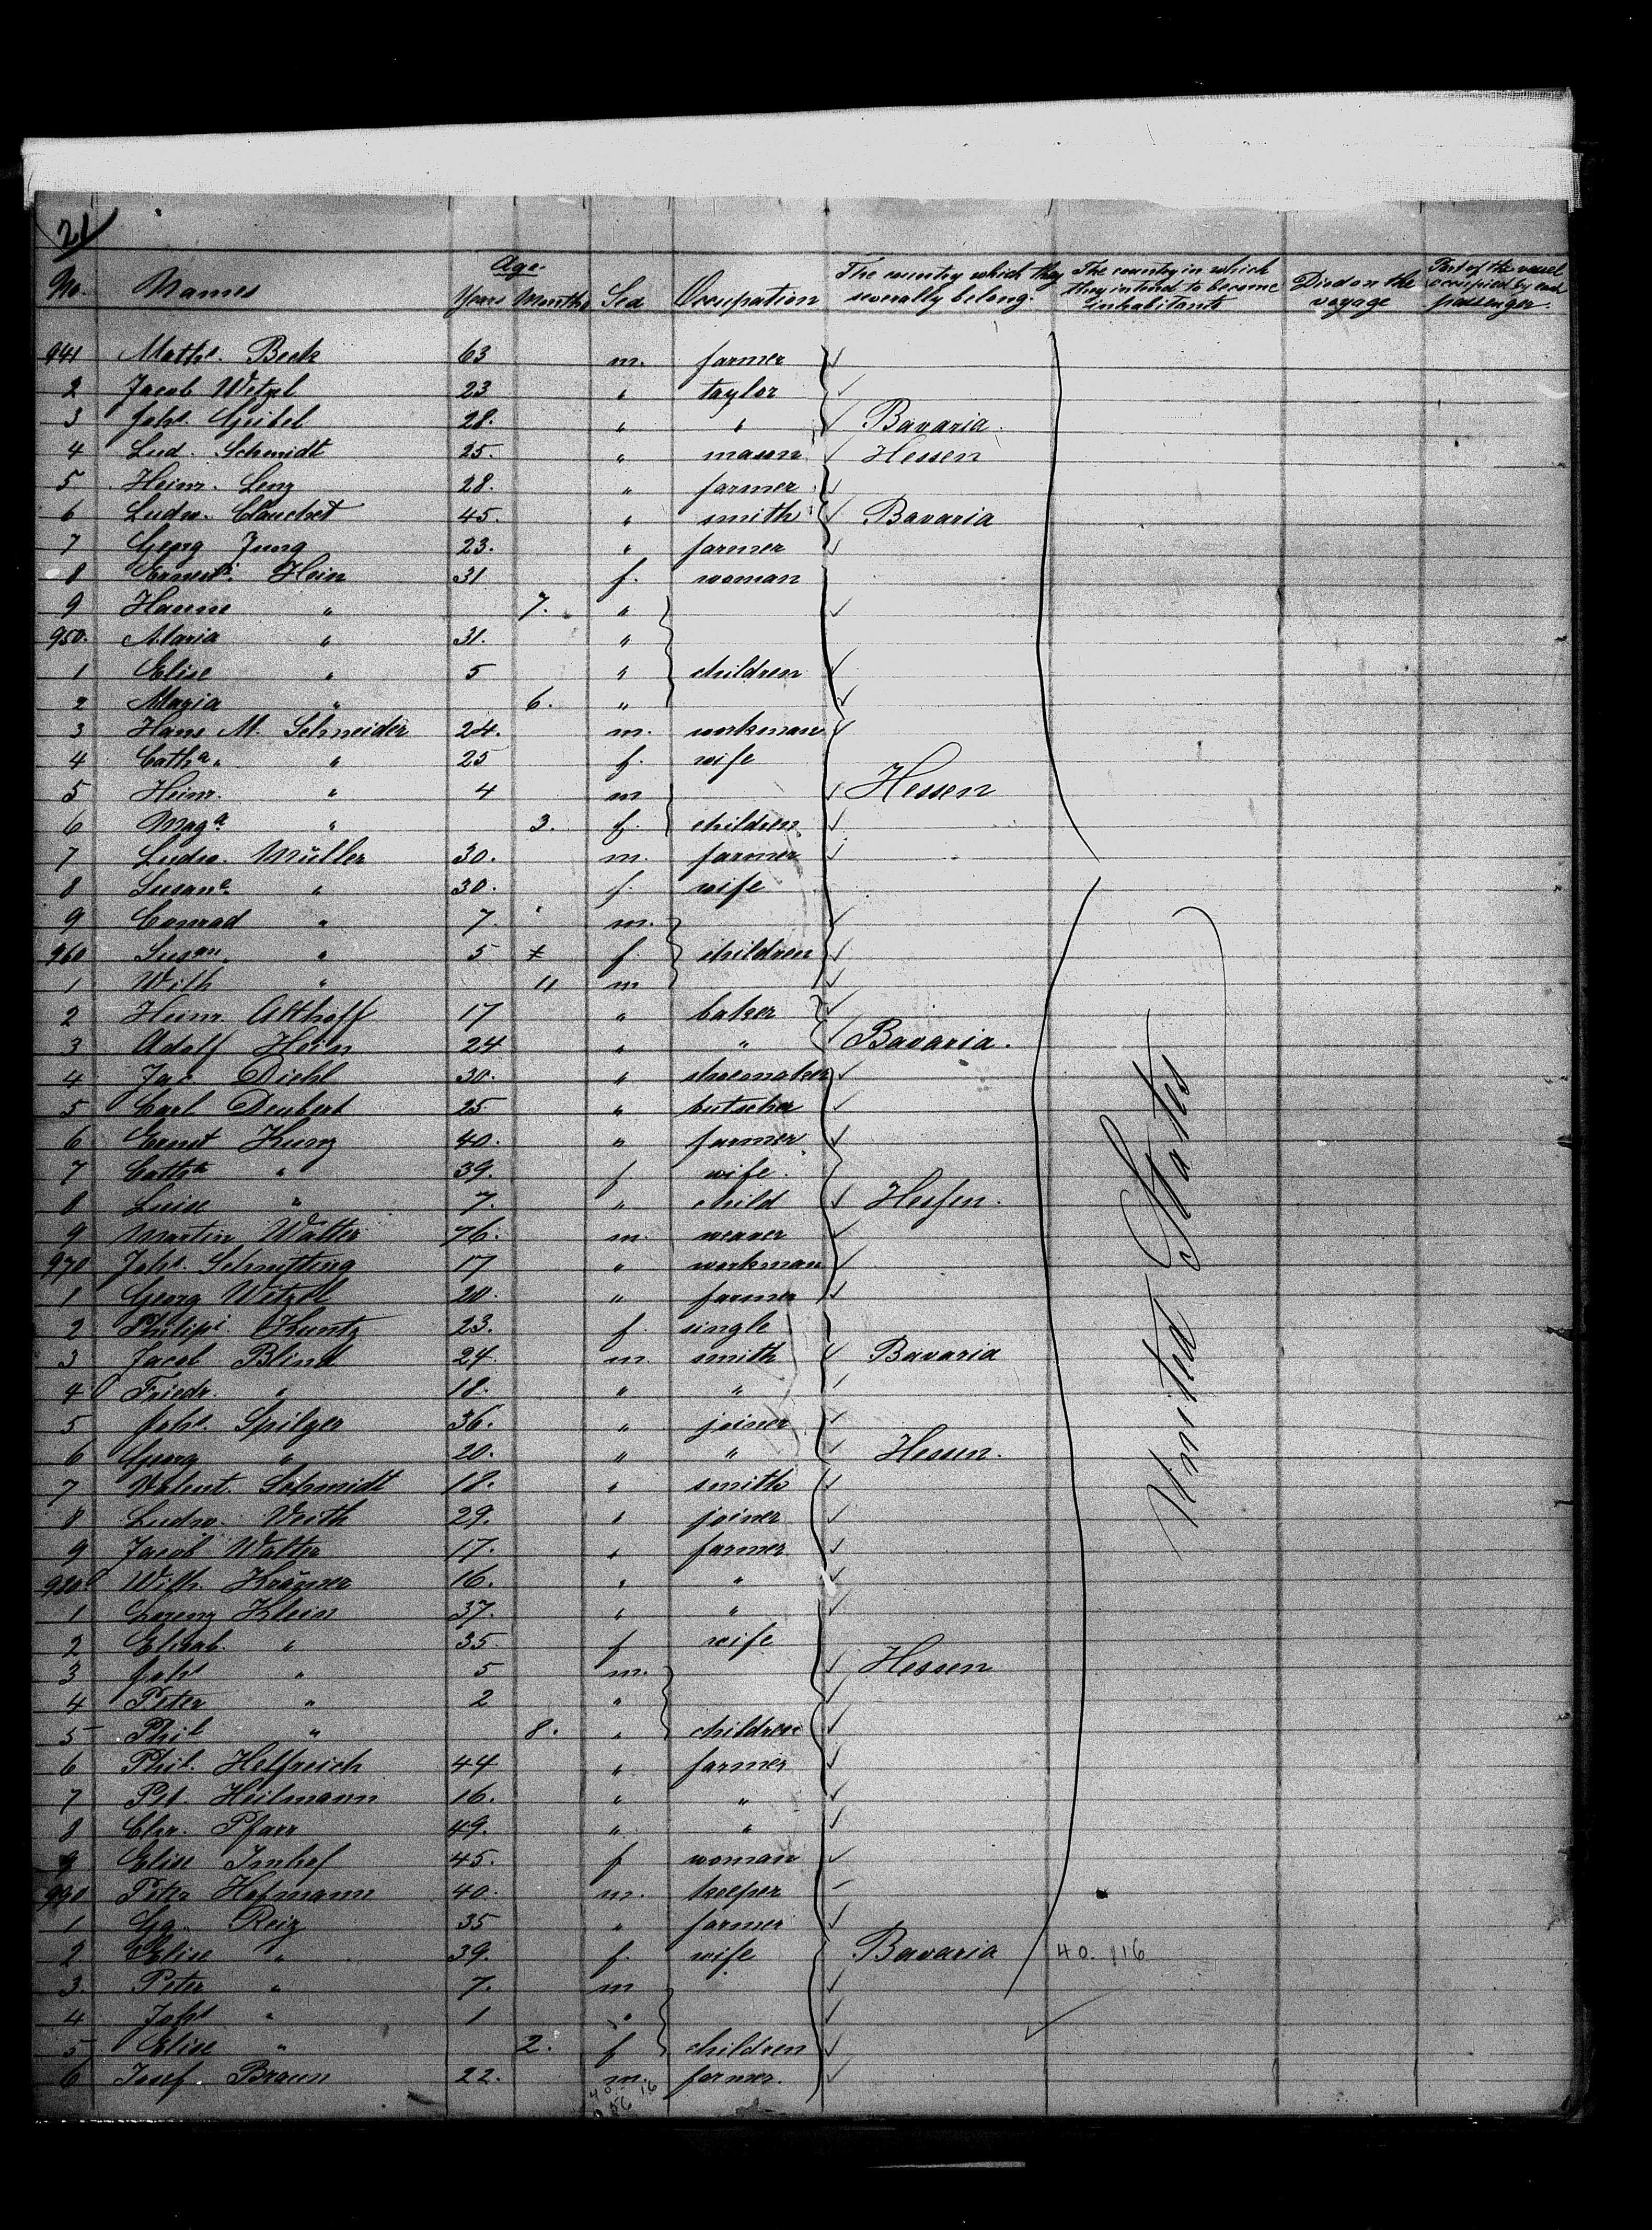 21
Age.
No. Names Years Months Sex Occupation The country which they severally belong. The country in which they intend to become inhabitants Died on the voyage Part of the vessel occupied by each passenger.
941 Beck 63 m. farmer
2 Jacob Wetzel 23 " taylor
3 Joh. Geibel 28. " " Bavaria.
4 Lud. Schmidt 25. " mason Hessen
5 Heinr. Lenz 28. " farmer
6 Ludw. 45. " smith Bavaria
7 Georg Jung 23. " farmer
8 Hein 31 f. woman
9 Hanne " 7. "
950. Maria " 31. "
1 Elise " 5 " children
2 Maria " 6. "
3 Hans M. Schneider 24. m. workman
4 Catha. " 25 f. wife
5 Heinr. " 4 m Hessen
6 Maga. " 3. f. children
7 Ludw. Müller 30. m. farmer
8 Susane. " 30. f. wife
9 Conrad " 7. m.
960 Susan. " 5 f. children
1 Wilh " 11 m
2 Heinr. Althoff 17 " baker
3 Adolf Hein 24 " " Bavaria.
4 Jac. Diehl 30. " shoemaker
5 Carl Deubert 25 " butscher
6 Ernst Kunz 40. " farmer
7 Catha " 39. f. wife.
8 Luise " 7. " child Hessen.
9 Martin Walter 76. m. weaver
970 Joh. 17 " workman
1 Georg Wetzel 20. " farmer
2 Philipi. Kuntz 23. f. single
3 Jacob Blind 24. m. smith Bavaria
4 Friedr. " 18. " "
5 Joh. Spilger 36. " joiner
6 Georg " 20. " " Hessen.
7 Valent. Schmidt 18. " smith
8 Ludw. Veith 29. " joiner
9 Jacob Walter 17. " farmer
980 Wilh. Krämer 16. " "
1 Lorenz Klein 37. " "
2 Elisab. " 35. f wife
3 Joh. " 5 m. Hessen
4 Peter " 2 "
5 Phil " 8. " children
6 Phil. Helfreich 44 " farmer
7 Pet. Heilmann 16. " "
8 Chr. Pfarr 49. " "
9 Elise Imhof 45. f woman
990 Peter Hofmann 40. m. keeper
1 Gg. Reiz 35 " farmer
2. Elise " 39. f. wife Bavaria 40. 16
3. Peter " 7. m
4 Joh " 1 "
5 Elise " 2. f children
6 Josef Braun 22. m. farmer.
United States